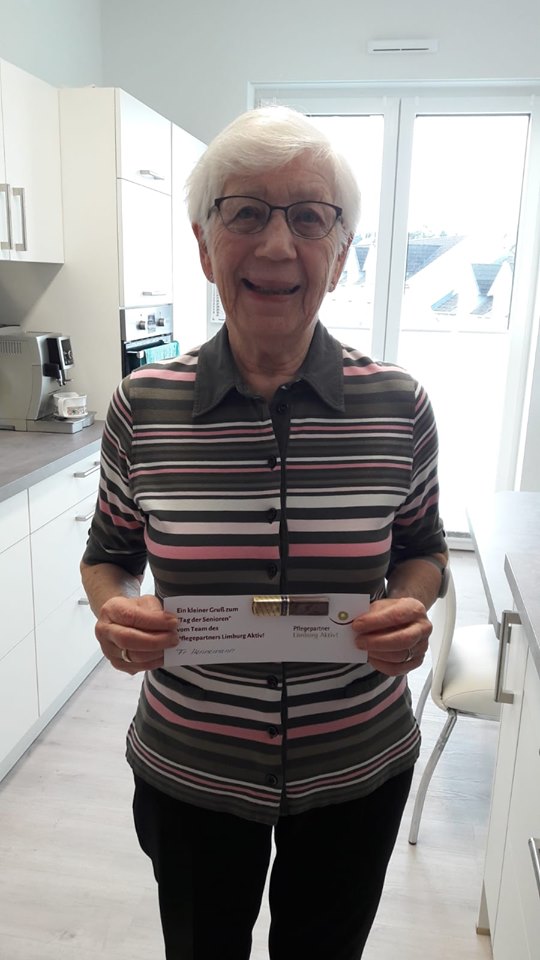 Ein kleiner Gruß zum
"Tag der Senioren"
vom Team des
Pflegepartners Limburg Aktiv!
Fr. Hennemann
Pflegepartner
Limburg Aktiv!